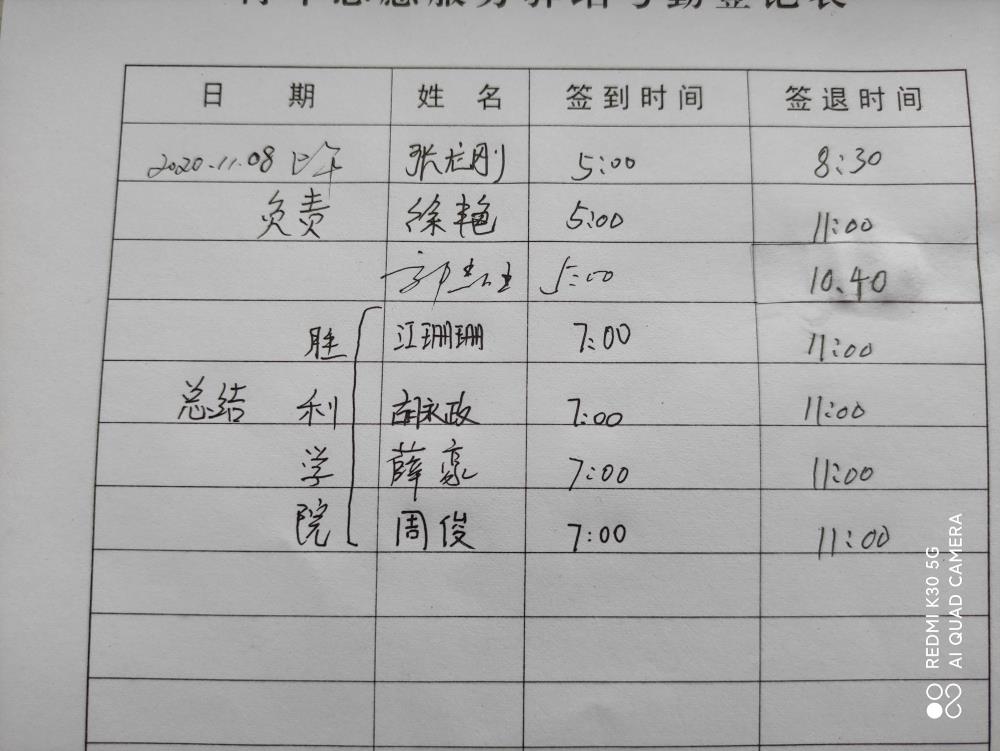 青年志愿服务驿站考勤登记表
日 期 姓 名 签到时间 签退时间
2020.11.08 上午 张龙刚 5:00 8:30
负责 徐艳 5:00 11:00
郭 5:00 10.40
胜 江珊珊 7:00 11:00
总结 利 胡永政 7:00 11:00
学 薛豪 7:00 11:00
院 周俊 7:00 11:00
REDMI K30 5G
AI QUAD CAMERA